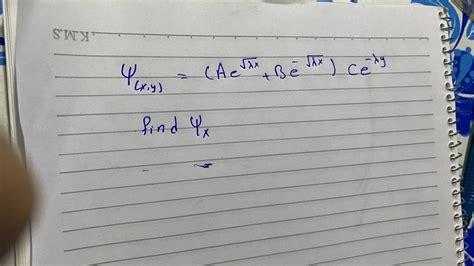 K.M.S
Ψ(x,y) = (Ae^√λx + Be^-√λx) Ce^-λy
find Ψx